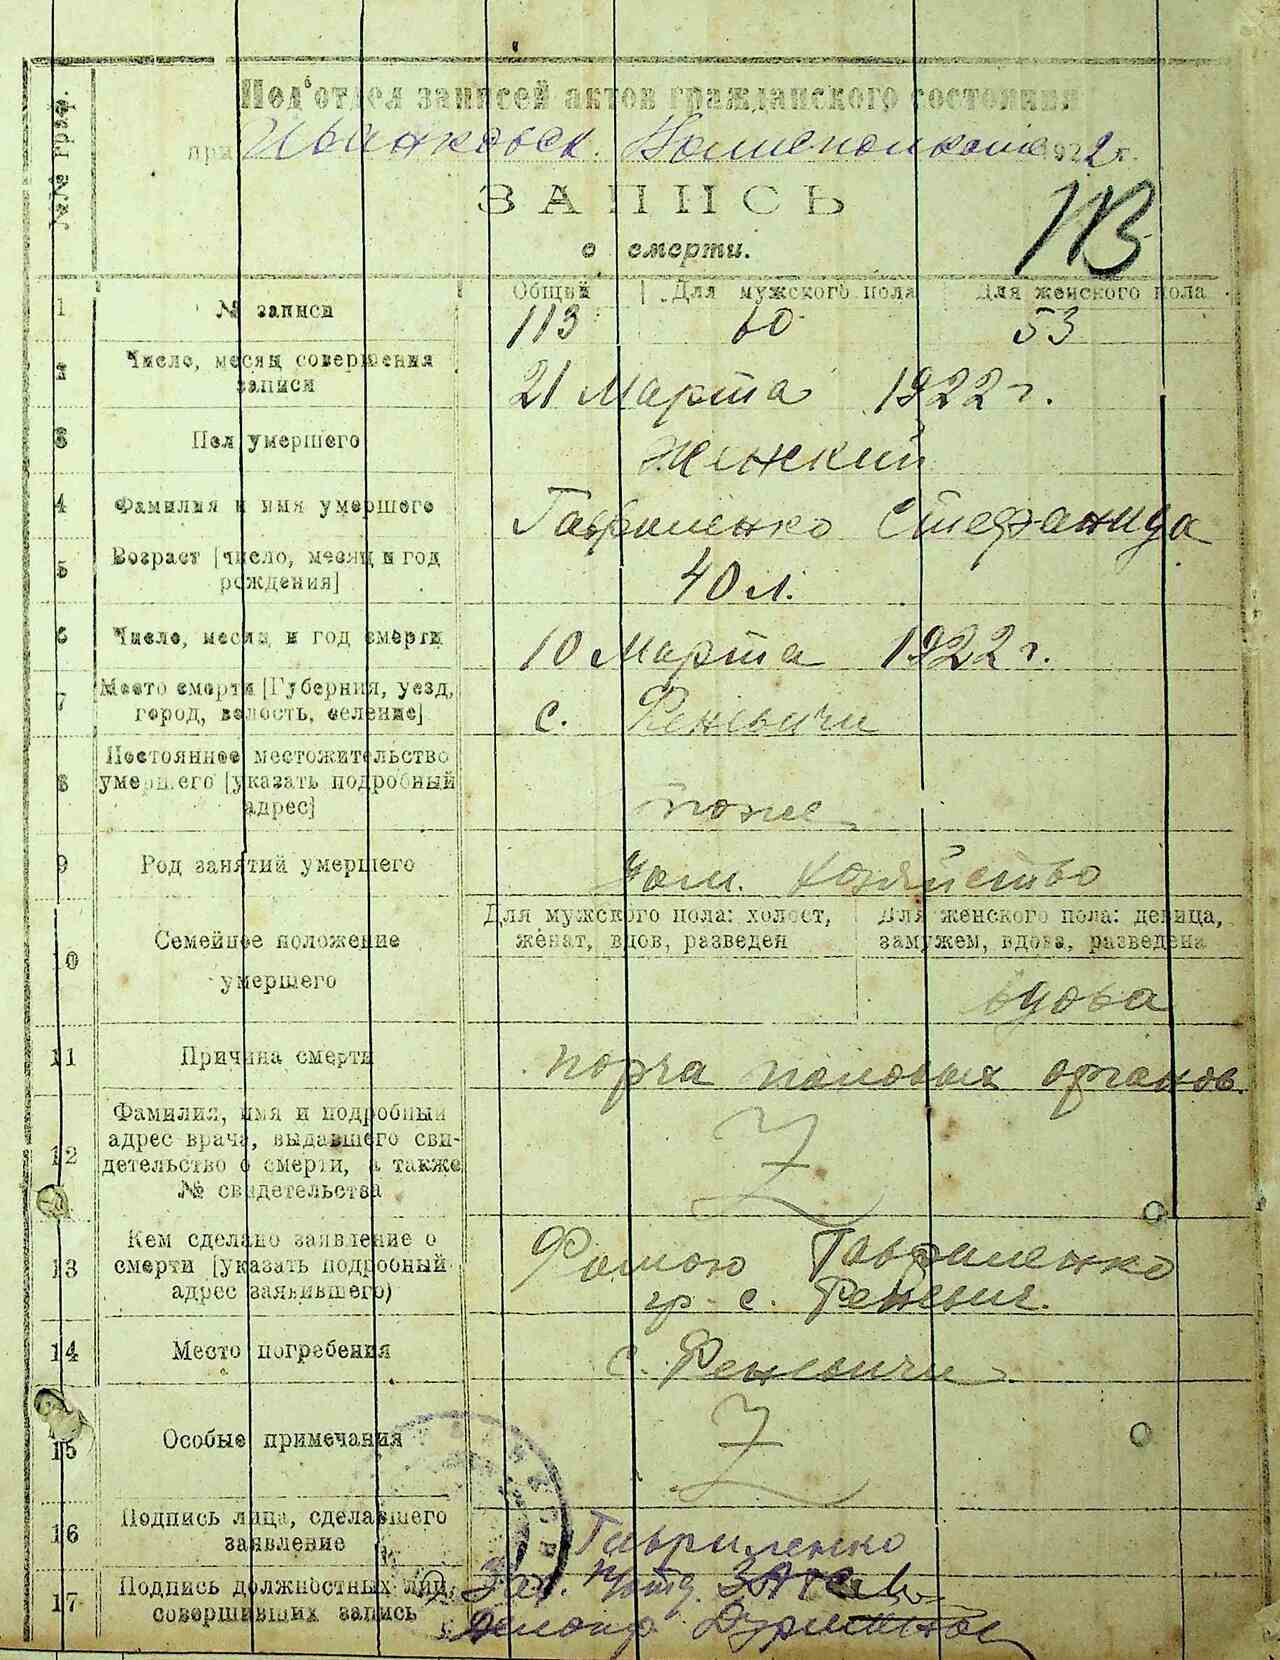 №№ граф.
Под'отдел записей актов гражданского состояния
при Иванковск. Волисполкоме 1922 г.
113
ЗАПИСЬ
о смерти.
1 № записи Общий Для мужского пола Для женского пола
113 60 53
2 Число, месяц совершения записи 21 Марта 1922 г.
3 Пол умершего Женский
4 Фамилия и имя умершего Гавриленко Стефанида
5 Возраст [число, месяц и год рождения] 40 л.
6 Число, месяц и год смерти 10 Марта 1922 г.
7 Место смерти [Губерния, уезд, город, волость, селение] с. Феневичи
8 Постоянное местожительство умершего [указать подробный адрес] тоже
9 Род занятий умершего дом. хозяйство
10 Семейное положение умершего
Для мужского пола: холост, женат, вдов, разведен
Для женского пола: девица, замужем, вдова, разведена
вдова
11 Причина смерти порча половых органов
12 Фамилия, имя и подробный адрес врача, выдавшего свидетельство о смерти, а также № свидетельства
13 Кем сделано заявление о смерти [указать подробный адрес заявившего) Фомою Гавриленко
гр. с. Феневич.
14 Место погребения с. Феневичи
15 Особые примечания
16 Подпись лица, сделавшего заявление Гавриленко
17 Подпись должностных лиц, совершивших запись Зав. п/отд. ЗАГСа
Делопр.